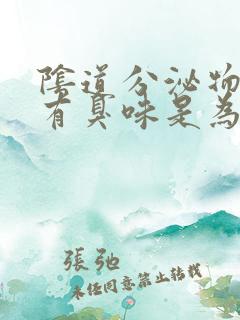 陰道分泌物
有臭味是為
張弛
未经同意禁止转载